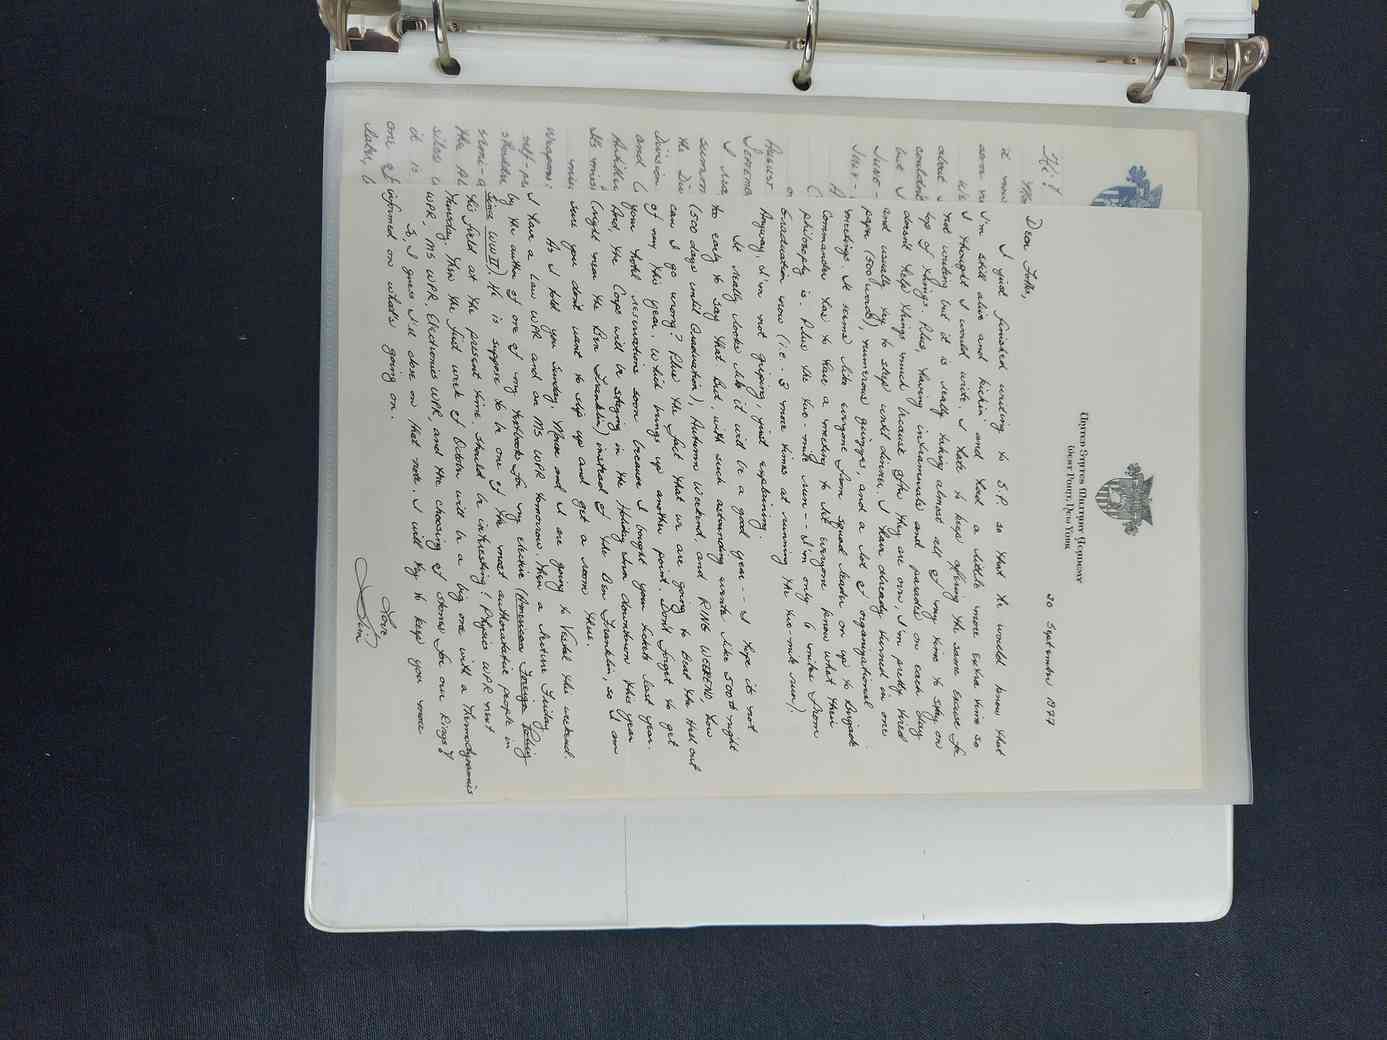 United States Military Academy
West Point, New York
20 September 1977
Dear Folks,
I just finished writing to S.P. so that he would know that
I'm still alive and kickin' and had a little more extra time so
I thought I would write. I hate to keep offering the same excuse for
not writing but it is really taking almost all of my time to stay on
top of things. Plus, having intramurals and parades on each day
doesn't help things much because after they are over, I'm pretty tired
and usually try to sleep until dinner. I have already turned in one
paper (500 words), numerous quizzes, and a lot of organizational
meetings. It seems like everyone from squad leader on up to Brigade
Commander has to have a meeting to let everyone know what their
philosophy is. Plus the two-mile run -- I'm only 6 miles from
Graduation now (i.e. 3 more times at running the two-mile run).
Anyway, I'm not griping, just explaining.
It really looks like it will be a good year -- I hope its not
to early to say that but, with such astounding events like 500th night
(500 days until Graduation), Autumn Weekend, and RING WEEKEND, how
can I go wrong? Plus the fact that we are going to Beat the Hell out
of Navy this year. Which brings up another point. Don't forget to get
your hotel reservations soon because I bought your tickets last year.
And the Corps will be staying in the Holiday Inn downtown this year
(right near the Ben Franklin) instead of the Ben Franklin, so I'm
sure you don't want to slip up and get a room there.
As I told you Sunday, Marie and I are going to Vassar this weekend.
I have a Law WPR and an MS WPR tomorrow. Then a lecture Friday
by the author of one of my textbooks for my elective (American Foreign Policy
Since WWII). He is suppose to be one of the most authoritative people in
his field at the present time. Should be interesting! Physics WPR next
Thursday. Then the first week of October will be a big one with a Thermodynamics
WPR, MS WPR, Electronics WPR, and the choosing of stones for our Rings!
So, I guess I'll close on that note. I will try to keep you more
informed on what's going on.
Love
Jim
Hi!
August
June -
July -
can I